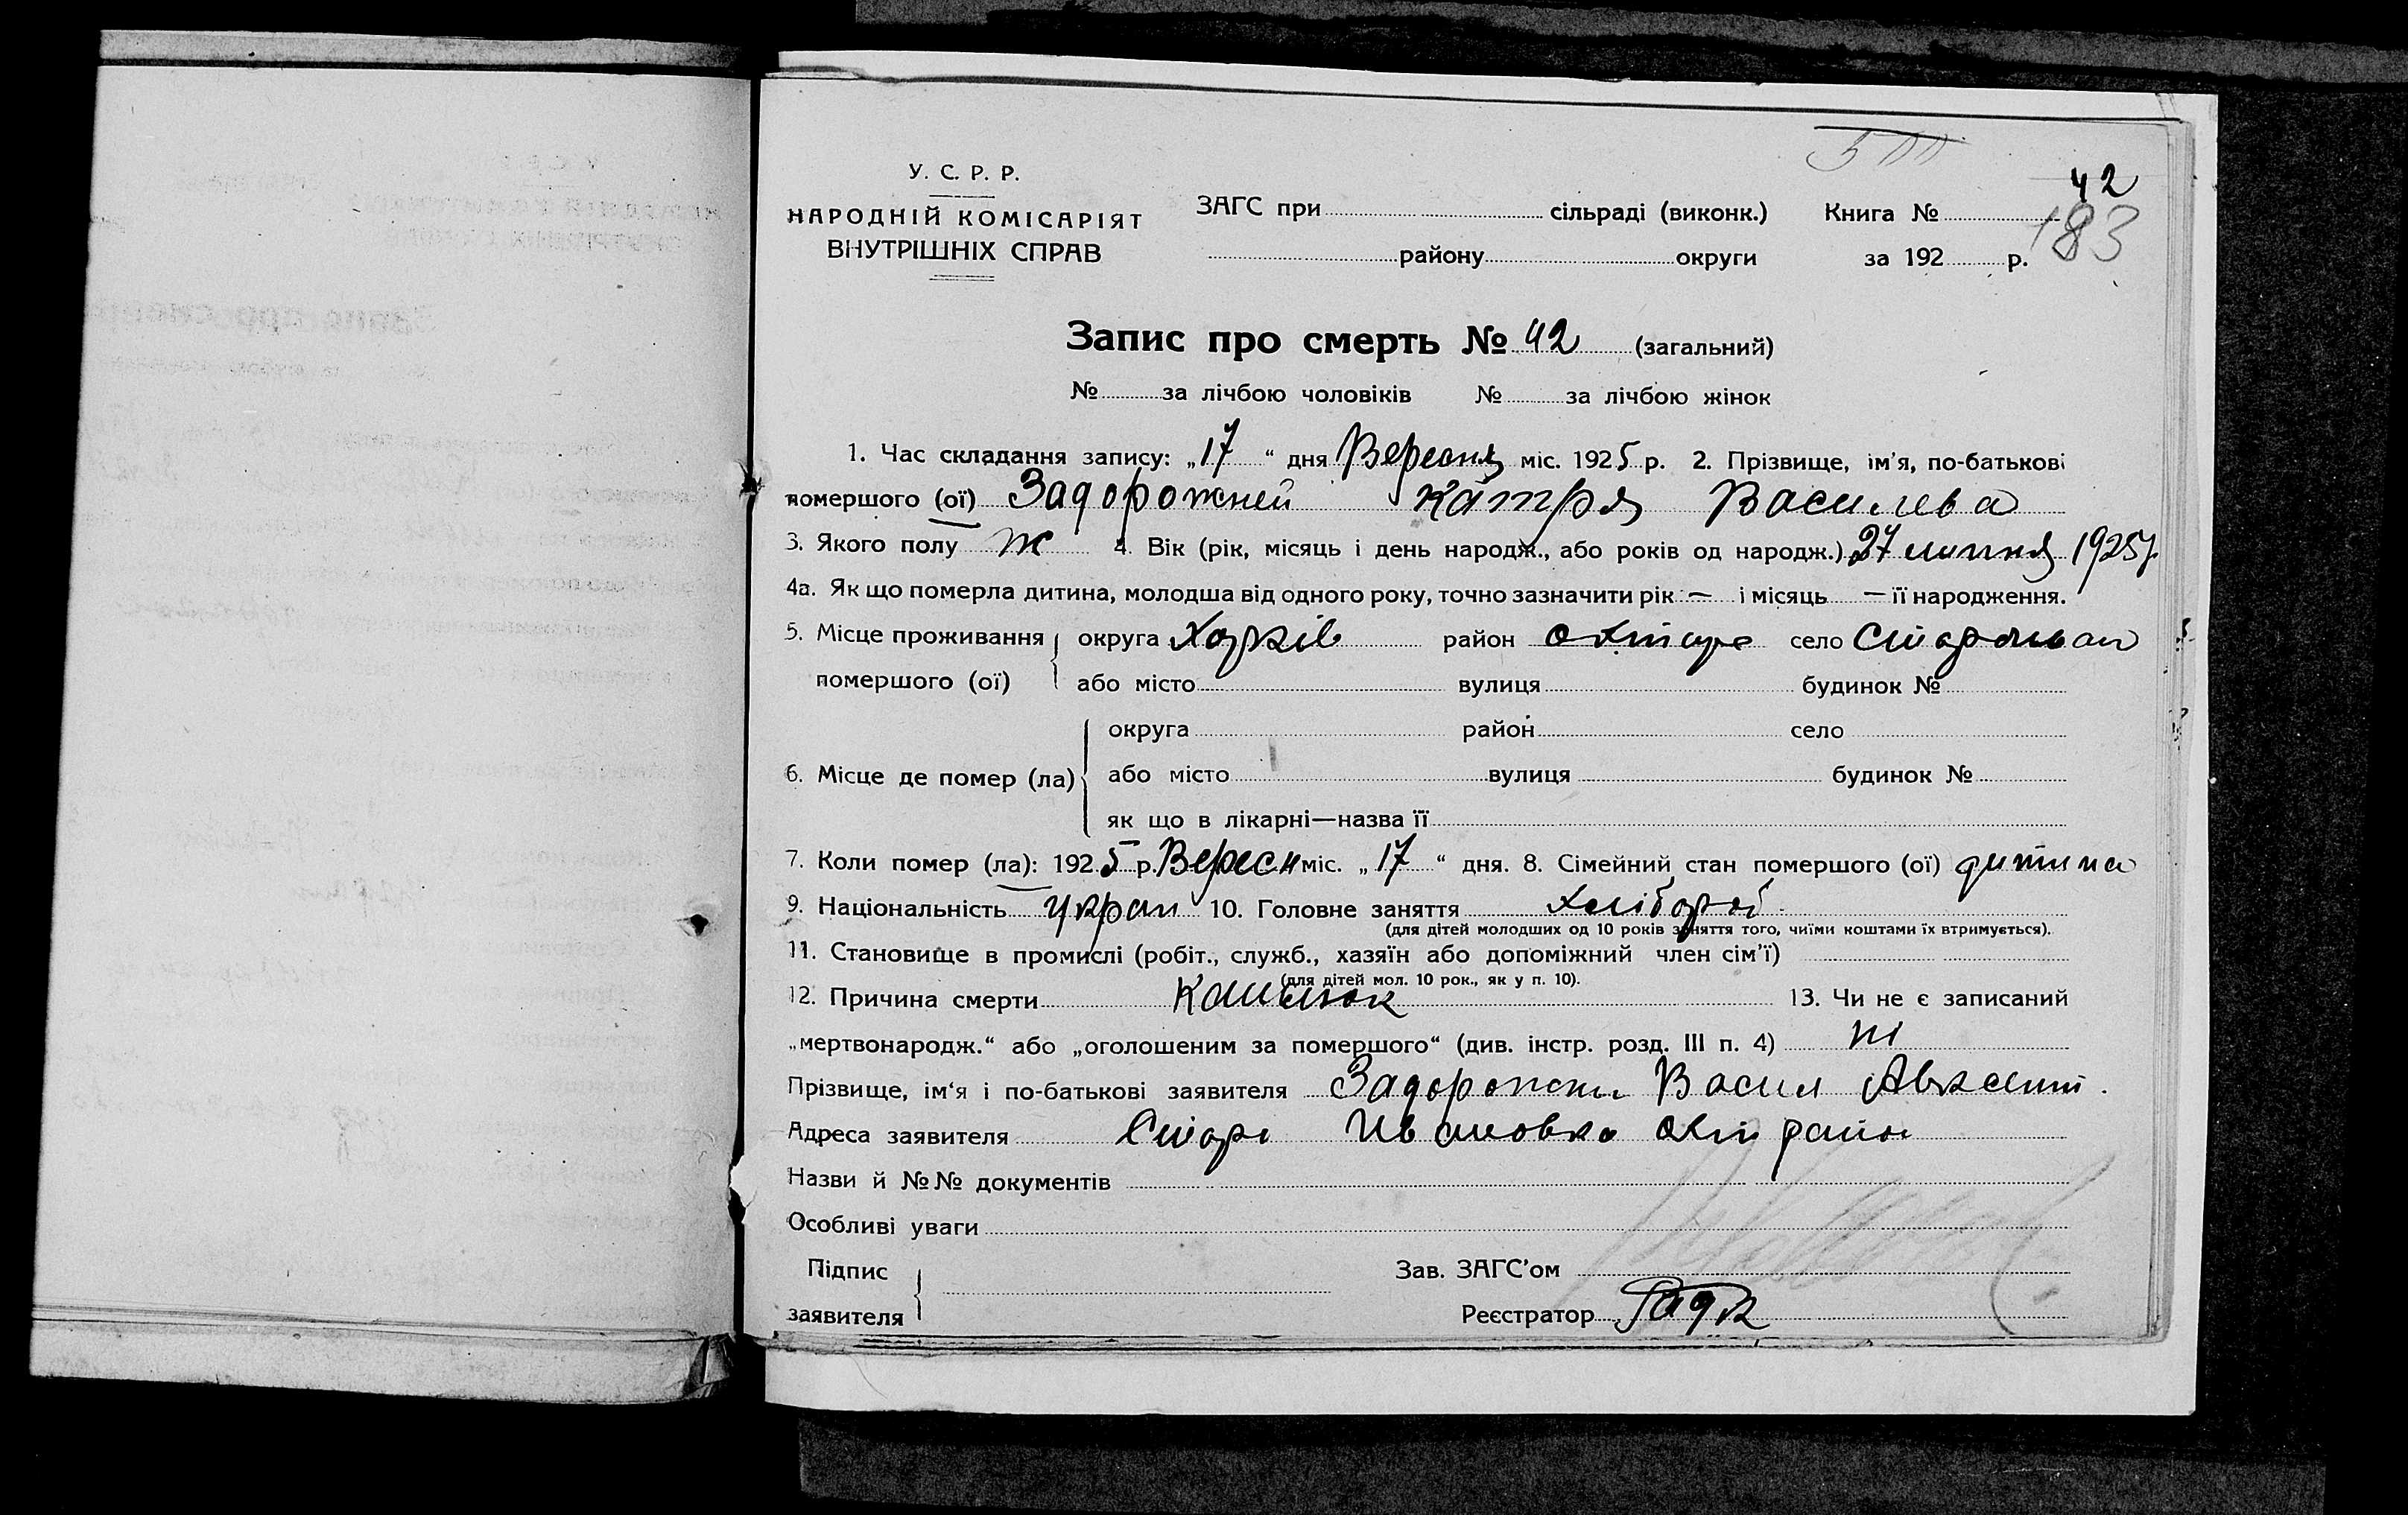 500
У. С. Р. Р.
НАРОДНІЙ КОМІСАРІЯТ
ВНУТРІШНІХ СПРАВ
ЗАГС при сільраді (виконк.) Книга № 42
району округи за 192 р. 183
Запис про смерть № 42 (загальний)
№ за лічбою чоловіків № за лічбою жінок
1. Час складання запису: „17“ дня Вересня міс. 1925 р. 2. Прізвище, ім'я, по-батькові
помершого (ої) Задорожней Катря Василева
3. Якого полу ж 4. Вік (рік, місяць і день народж., або років од народж.) 27 липня 1925р
4а. Як що померла дитина, молодша від одного року, точно зазначити рік — і місяць — її народження.
5. Місце проживання округа Харків район Охтире село
помершого (ої) або місто вулиця будинок №
округа район село
6. Місце де помер (ла) або місто вулиця будинок №
як що в лікарні—назва її
7. Коли помер (ла): 1925 р. Вересн міс. „17“ дня. 8. Сімейний стан помершого (ої) дитина
9. Національність укран 10. Головне заняття хлібороб
(для дітей молодших од 10 років заняття того, чиїми коштами їх втримується).
11. Становище в промислі (робіт., служб., хазяїн або допоміжний член сім'ї)
(для дітей мол. 10 рок., як у п. 10).
12. Причина смерти Кашлюк 13. Чи не є записаний
„мертвонародж.“ або „оголошеним за помершого“ (див. інстр. розд. III п. 4) ні
Прізвище, ім'я і по-батькові заявителя Задорожни Васил Авксент.
Адреса заявителя Старо Ивановка Охт район
Назви й №№ документів
Особливі уваги
Підпис Зав. ЗАГС'ом
заявителя Реєстратор